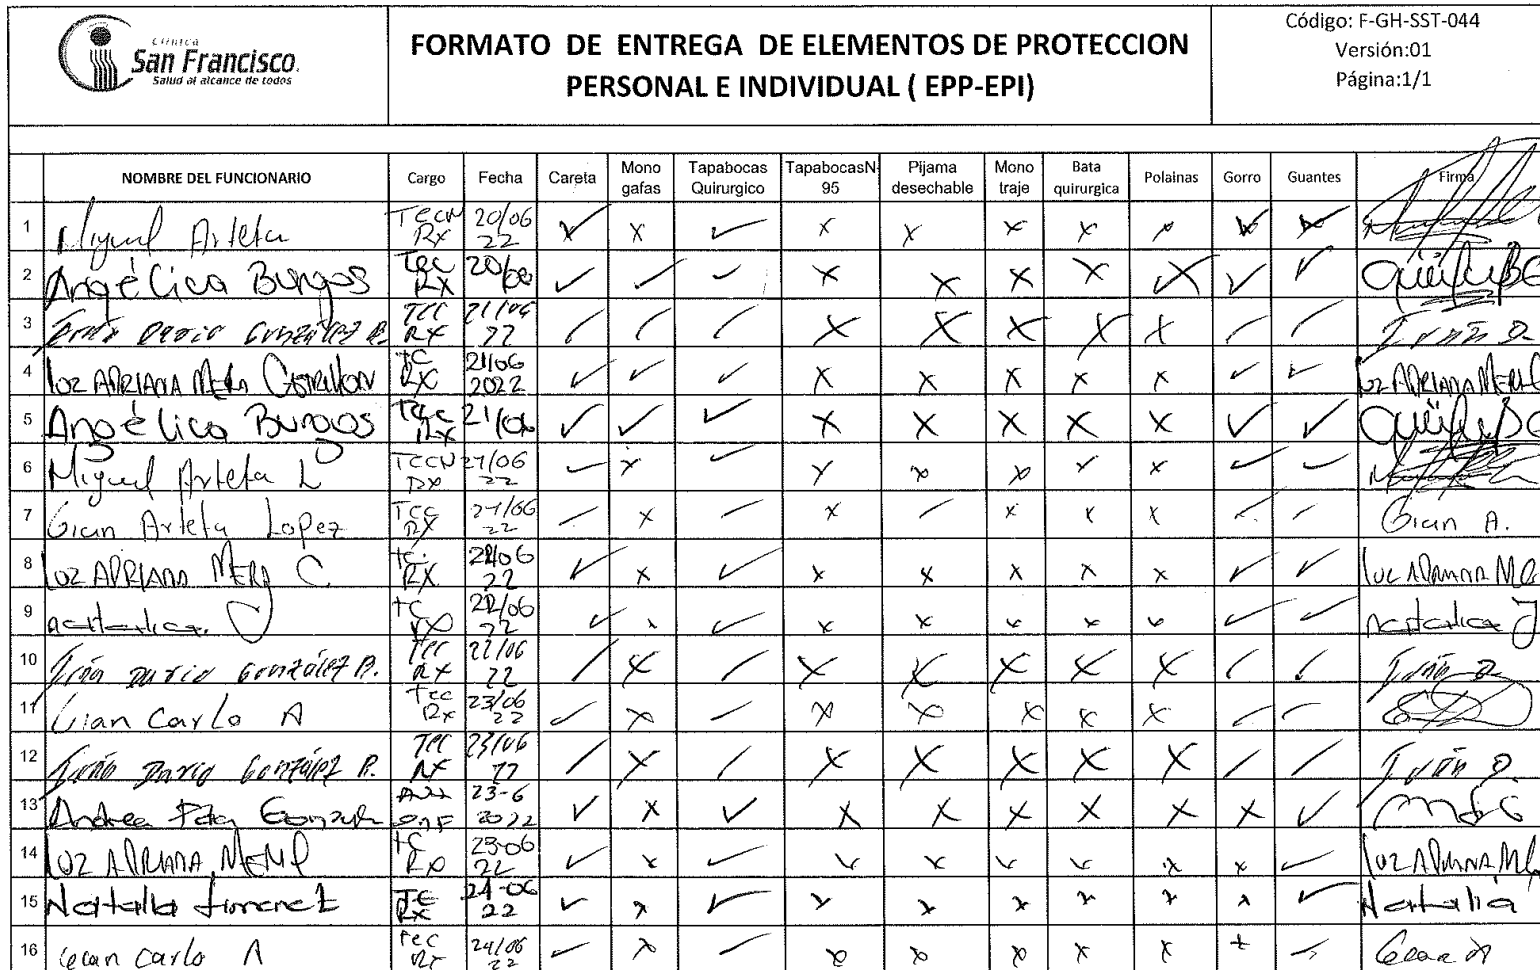 Clínica
San Francisco.
Salud al alcance de todos
FORMATO DE ENTREGA DE ELEMENTOS DE PROTECCION
PERSONAL E INDIVIDUAL ( EPP-EPI)
Código: F-GH-SST-044
Versión:01
Página:1/1
NOMBRE DEL FUNCIONARIO Cargo Fecha Careta Mono gafas Tapabocas Quirurgico TapabocasN 95 Pijama desechable Mono traje Bata quirurgica Polainas Gorro Guantes Firma
1 Miguel Arteta Tecn Rx 20/06 22 ✓ x ✓ x x x x x ✓ ✓
2 Angélica Burgos Tec RX 20/06 ✓ ✓ ✓ x x x x x ✓ ✓
3 Iván Dario González R. Tec RX 21/06 22 ✓ ✓ ✓ x x x x x ✓ ✓ Iván D.
4 luz ADRIANA MERA TC RX 21/06 2022 ✓ ✓ ✓ x x x x x ✓ ✓ luz ADRIANA MERA C
5 Angélica Burgos Tec Rx 21/06 ✓ ✓ ✓ x x x x x ✓ ✓
6 Miguel Arteta L Tecn Rx 21/06 22 ✓ x ✓ x x x x x ✓ ✓
7 Gian Arteta Lopez Tec RX 21/06 22 ✓ x ✓ x ✓ x x x ✓ ✓ Gian A.
8 luz ADRIANA MERA C tc. RX 22/06 22 ✓ x ✓ x x x x x ✓ ✓ luz ADRIANA M
9 natalia. J tc RX 22/06 22 ✓ x ✓ x x x x x ✓ ✓ natalia J
10 Iván Dario González R. Tec RX 22/06 22 ✓ x ✓ x x x x x ✓ ✓ Iván D.
11 Gian Carlo A Tec Rx 23/06 22 ✓ x ✓ x x x x x ✓ ✓
12 Iván Dario González R. Tec RX 23/06 22 ✓ x ✓ x x x x x ✓ ✓ Iván D.
13 Andrea 23-6 2022 ✓ x ✓ x x x x x x ✓
14 luz ADRIANA MERA tc Rx 23-06 22 ✓ x ✓ x x x x x x ✓ luz ADRIANA M
15 Natalia Jimenez TC Rx 24-06 22 ✓ x ✓ x x x x x x ✓ Natalia
16 Gean Carlo A Tec Rx 24/06 22 ✓ x ✓ x x x x x x ✓ Gean A